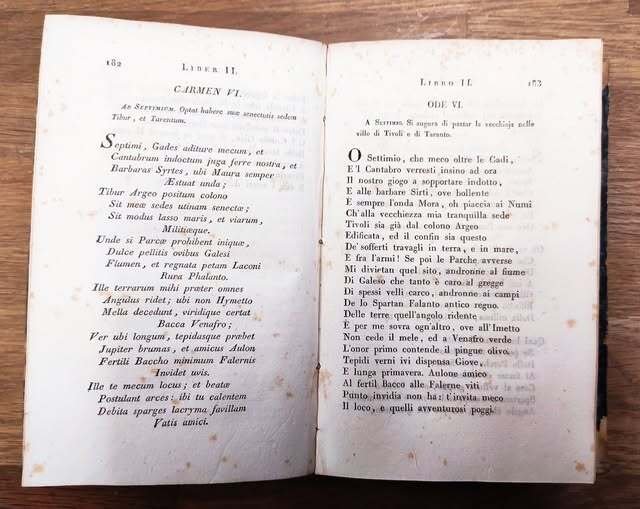 182 LIBER II.
CARMEN VI.
AD SEPTIMIUM. Optat habere meæ senectutis sedem
Tibur, et Tarentum.
Septimi, Gades aditure mecum, et
Cantabrum indoctum juga ferre nostra, et
Barbaras Syrtes, ubi Maura semper
Æstuat unda;
Tibur Argeo positum colono
Sit meæ sedes utinam senectæ;
Sit modus lasso maris, et viarum,
Militiæque.
Unde si Parcæ prohibent iniquæ,
Dulce pellitis ovibus Galesi
Flumen, et regnata petam Laconi
Rura Phalanto.
Ille terrarum mihi præter omnes
Angulus ridet; ubi non Hymetto
Mella decedunt, viridique certat
Bacca Venafro;
Ver ubi longum, tepidasque præbet
Jupiter brumas, et amicus Aulon
Fertili Baccho minimum Falernis
Invidet uvis.
Ille te mecum locus; et beatæ
Postulant arces: ibi tu calentem
Debita sparges lacryma favillam
Vatis amici.
LIBRO II. 183
ODE VI.
A SETTIMIO. Si augura di passar la vecchiaja nelle
ville di Tivoli e di Taranto.
O Settimio, che meco oltre le Gadi,
E'l Cantabro verresti insino ad ora
Il nostro giogo a sopportare indotto,
E alle barbare Sirti, ove bollente
È sempre l'onda Mora, oh piaccia ai Numi
Ch'alla vecchiezza mia tranquilla sede
Tivoli sia già dal colono Argeo
Edificata, ed il confin sia questo
De' sofferti travagli in terra, e in mare,
E fra l'armi! Se poi le Parche avverse
Mi divietan quel sito, andronne al fiume
Di Galeso che tanto è caro al gregge
Di spessi velli carco, andronne ai campi
De lo Spartan Falanto antico regno.
Delle terre quell'angolo ridente
È per me sovra ogn'altro, ove all'Imetto
Non cede il mele, ed a Venafro verde
L'onor primo contende il pingue olivo.
Tepidi verni ivi dispensa Giove,
E lunga primavera. Aulone amico
Al fertil Bacco alle Falerne viti
Punto invidia non ha: t'invita meco
Il loco, e quelli avventurosi poggi.